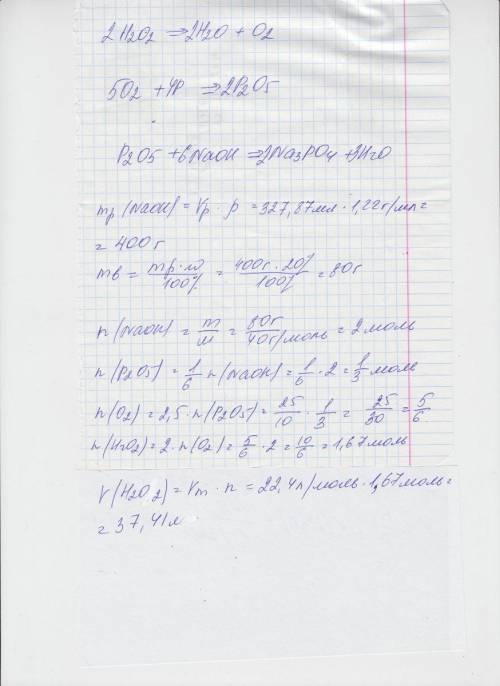 2H2O2 ⇒ 2H2O + O2
5O2 + 4P ⇒ 2P2O5
P2O5 + 6NaOH ⇒ 2Na3PO4 + 3H2O
mр (NaOH) = Vр · ρ = 327,87мл · 1,22г/мл =
= 400г
mв = mр·ω/100% = 400г · 20%/100% = 80г
n (NaOH) = m/M = 80г/40г/моль = 2моль
n (P2O5) = 1/6 n (NaOH) = 1/6 · 2 = 1/3 моль
n (O2) = 2,5 · n (P2O5) = 25/10 · 1/3 = 25/30 = 5/6
n (H2O2) = 2 · n (O2) = 5/6 · 2 = 10/6 = 1,67моль
V (H2O2) = Vm · n = 22,4л/моль · 1,67моль =
= 37,41л